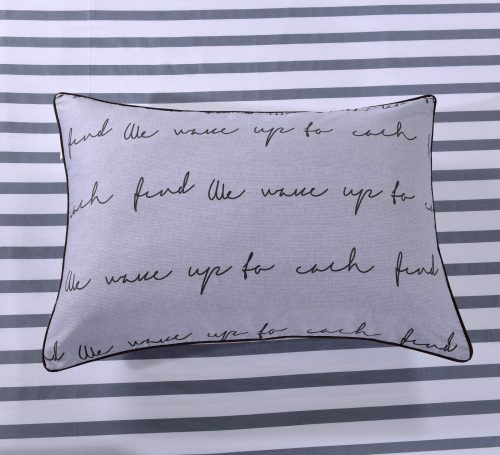 find We wake up to each
each find We wake up to
We wake up to each find
We wake up to each find